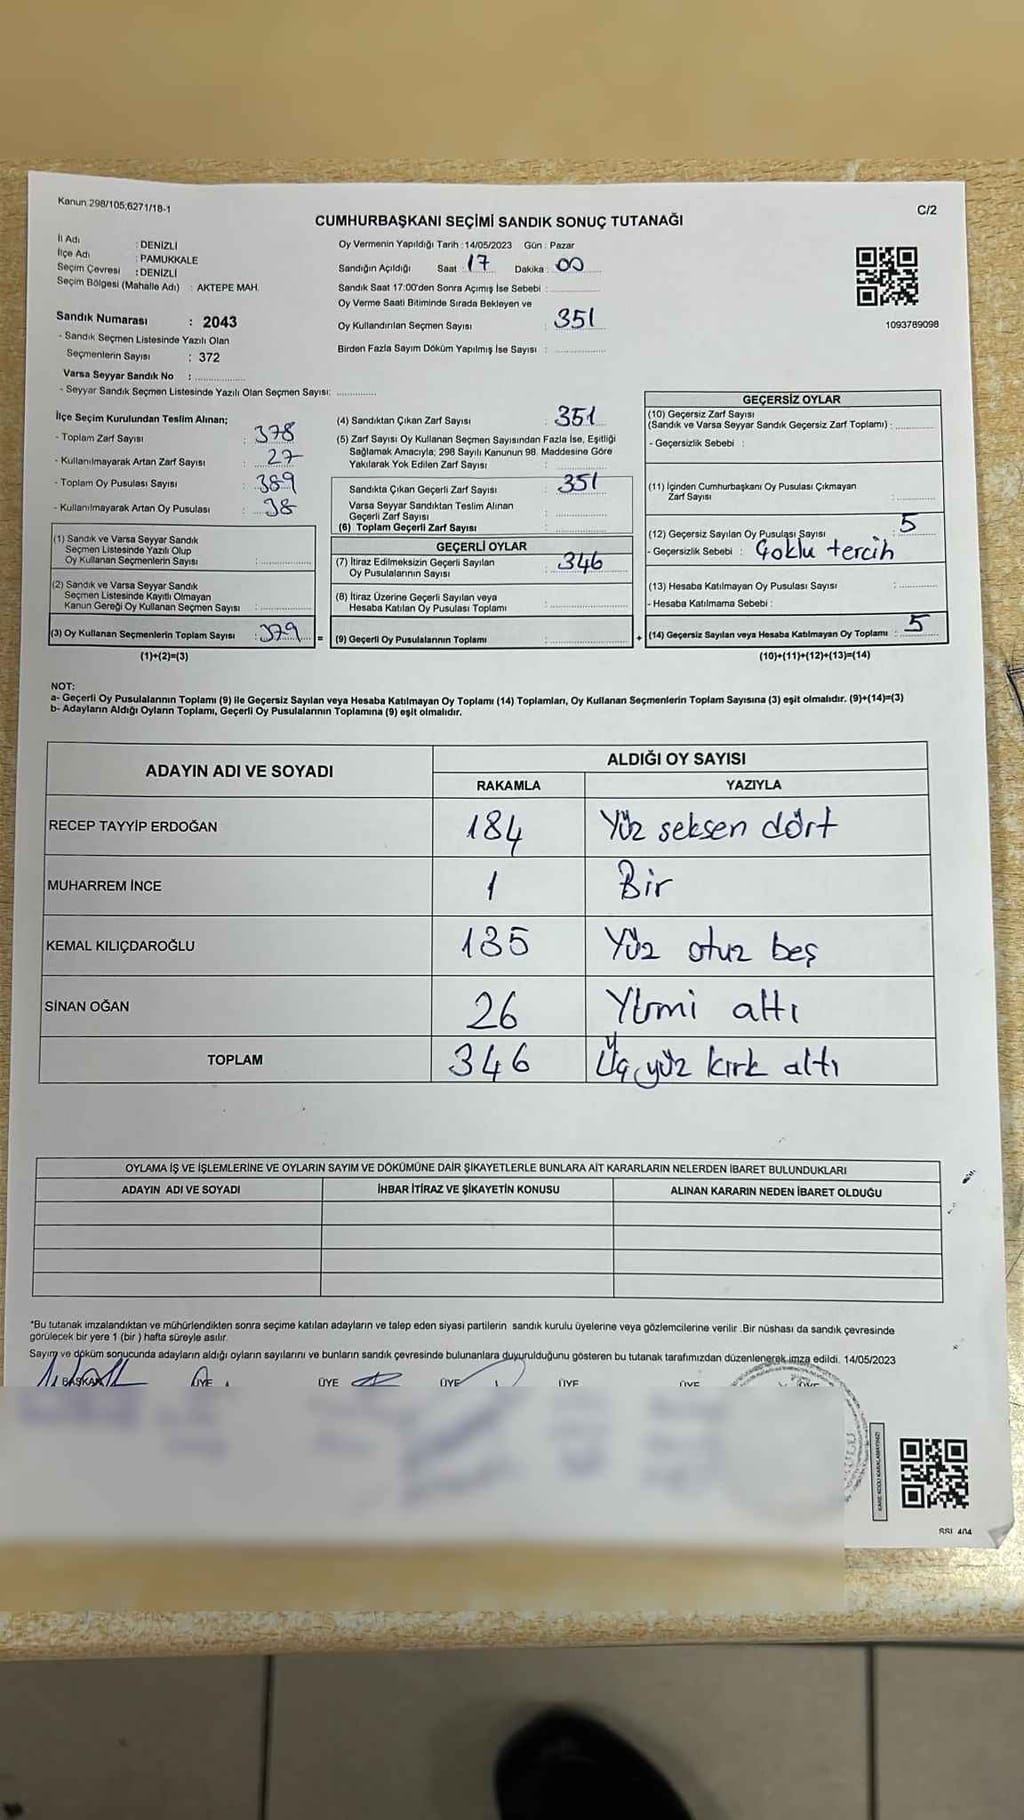 Kanun 298/105,6271/18-1
C/2
CUMHURBAŞKANI SEÇİMİ SANDIK SONUÇ TUTANAĞI
İl Adı : DENİZLİ
İlçe Adı : PAMUKKALE
Seçim Çevresi : DENİZLİ
Seçim Bölgesi (Mahalle Adı) : AKTEPE MAH.
Sandık Numarası : 2043
- Sandık Seçmen Listesinde Yazılı Olan
Seçmenlerin Sayısı : 372
Varsa Seyyar Sandık No :
- Seyyar Sandık Seçmen Listesinde Yazılı Olan Seçmen Sayısı:
Oy Vermenin Yapıldığı Tarih :14/05/2023 Gün : Pazar
Sandığın Açıldığı Saat : 17 Dakika : 00
Sandık Saat 17:00'den Sonra Açımış İse Sebebi :
Oy Verme Saati Bitiminde Sırada Bekleyen ve
Oy Kullandırılan Seçmen Sayısı : 351
Birden Fazla Sayım Döküm Yapılmış İse Sayısı :
1093789098
İlçe Seçim Kurulundan Teslim Alınan;
- Toplam Zarf Sayısı : 378
- Kullanılmayarak Artan Zarf Sayısı : 27
- Toplam Oy Pusulası Sayısı : 389
- Kullanılmayarak Artan Oy Pusulası : 38
(1) Sandık ve Varsa Seyyar Sandık
Seçmen Listesinde Yazılı Olup
Oy Kullanan Seçmenlerin Sayısı :
(2) Sandık ve Varsa Seyyar Sandık
Seçmen Listesinde Kayıtlı Olmayan
Kanun Gereği Oy Kullanan Seçmen Sayısı :
(3) Oy Kullanan Seçmenlerin Toplam Sayısı : 379 =
(1)+(2)=(3)
(4) Sandıktan Çıkan Zarf Sayısı : 351
(5) Zarf Sayısı Oy Kullanan Seçmen Sayısından Fazla İse, Eşitliği
Sağlamak Amacıyla; 298 Sayılı Kanunun 98. Maddesine Göre
Yakılarak Yok Edilen Zarf Sayısı :
Sandıkta Çıkan Geçerli Zarf Sayısı : 351
Varsa Seyyar Sandıktan Teslim Alınan
Geçerli Zarf Sayısı :
(6) Toplam Geçerli Zarf Sayısı :
GEÇERLİ OYLAR
(7) İtiraz Edilmeksizin Geçerli Sayılan
Oy Pusulalarının Sayısı : 346
(8) İtiraz Üzerine Geçerli Sayılan veya
Hesaba Katılan Oy Pusulası Toplamı :
(9) Geçerli Oy Pusulalarının Toplamı : +
GEÇERSİZ OYLAR
(10) Geçersiz Zarf Sayısı
(Sandık ve Varsa Seyyar Sandık Geçersiz Zarf Toplamı) :
- Geçersizlik Sebebi :
(11) İçinden Cumhurbaşkanı Oy Pusulası Çıkmayan
Zarf Sayısı :
(12) Geçersiz Sayılan Oy Pusulası Sayısı : 5
- Geçersizlik Sebebi : Çoklu tercih
(13) Hesaba Katılmayan Oy Pusulası Sayısı :
- Hesaba Katılmama Sebebi :
(14) Geçersiz Sayılan veya Hesaba Katılmayan Oy Toplamı : 5
(10)+(11)+(12)+(13)=(14)
NOT:
a- Geçerli Oy Pusulalarının Toplamı (9) ile Geçersiz Sayılan veya Hesaba Katılmayan Oy Toplamı (14) Toplamları, Oy Kullanan Seçmenlerin Toplam Sayısına (3) eşit olmalıdır. (9)+(14)=(3)
b- Adayların Aldığı Oyların Toplamı, Geçerli Oy Pusulalarının Toplamına (9) eşit olmalıdır.
ADAYIN ADI VE SOYADI ALDIĞI OY SAYISI
RAKAMLA YAZIYLA
RECEP TAYYİP ERDOĞAN 184 Yüz seksen dört
MUHARREM İNCE 1 Bir
KEMAL KILIÇDAROĞLU 135 Yüz otuz beş
SİNAN OĞAN 26 Yirmi altı
TOPLAM 346 Üç yüz kırk altı
OYLAMA İŞ VE İŞLEMLERİNE VE OYLARIN SAYIM VE DÖKÜMÜNE DAİR ŞİKAYETLERLE BUNLARA AİT KARARLARIN NELERDEN İBARET BULUNDUKLARI
ADAYIN ADI VE SOYADI İHBAR İTİRAZ VE ŞİKAYETİN KONUSU ALINAN KARARIN NEDEN İBARET OLDUĞU
*Bu tutanak imzalandıktan ve mühürlendikten sonra seçime katılan adayların ve talep eden siyasi partilerin sandık kurulu üyelerine veya gözlemcilerine verilir .Bir nüshası da sandık çevresinde
görülecek bir yere 1 (bir ) hafta süreyle asılır.
Sayım ve döküm sonucunda adayların aldığı oyların sayılarını ve bunların sandık çevresinde bulunanlara duyurulduğunu gösteren bu tutanak tarafımızdan düzenlenerek imza edildi. 14/05/2023
BAŞKAN ÜYE ÜYE ÜYE ÜYE ÜYE ÜYE